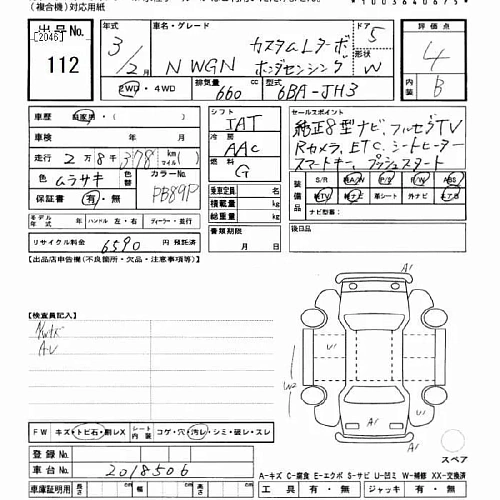 (複合機)対応用紙
出品No.
[2046]
112
年式
3/2月
車名・グレード
N WGN カスタムLターボ
ホンダセンシング
ドア 5
形状 W
2WD・4WD
排気量 660
型式 6BA-JH3
評価点
4
内装 B
車歴 自家用・( )
車検 年 月
走行 2万8千378 km マイル
色 ムラサキ
色替
カラーNo. PB89P
保証書 有・無
モデル年式 年 ハンドル 左・右 ディーラー・並行
リサイクル料金 6590 円 預託済
シフト IAT
冷房 AAC
燃料 G
乗車定員 名
積載量 kg
総重量 kg
書類期限
月 日
セールスポイント
純正8型ナビ、フルセグTV
Rカメラ、ETC、シートヒーター
スマートキー、プッシュスタート
装備品
S/R A/W P/S P/W ABS
純TV 純ナビ 革シート 外ナビ エアB
ナビ型番:
後日品
【出品店申告欄(不良箇所・欠品・注意事項等)】
【検査員記入】
A1
U1
U1
W2
A1
A1
スペア
FW キズ・トビ石・割レX
シート内装 コゲ・穴・汚レ・シミ・破レ・スレ
登録No.
車台No. 2018506
車庫証明用 長さ cm 幅 cm 高さ cm
A-キズ C-腐食 E-エクボ S-サビ U-凹ミ W-補修 XX-交換済
工具 有・無 ジャッキ 有・無